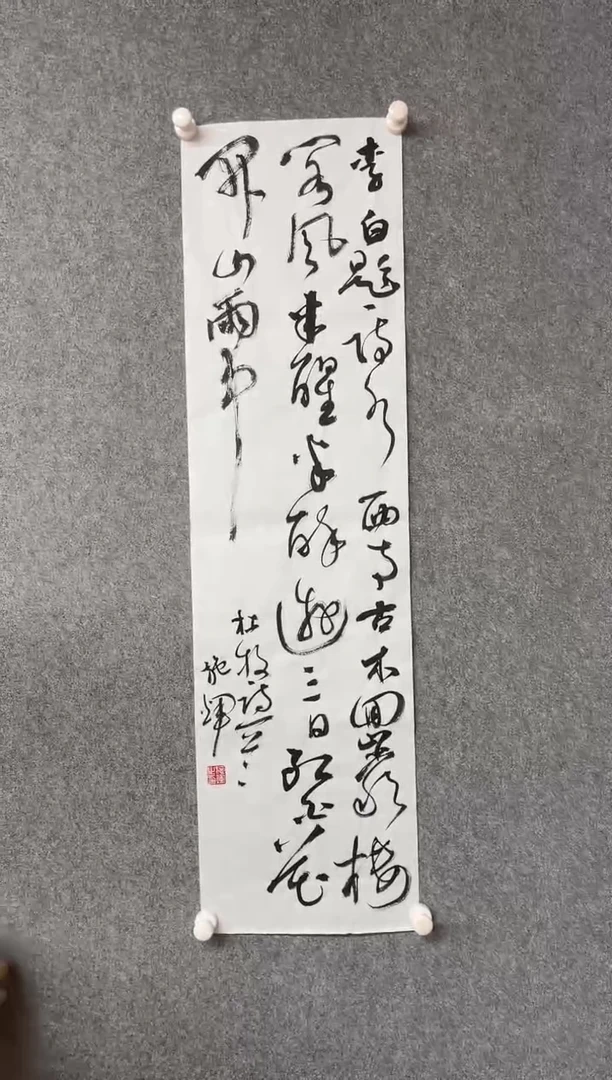 李白题诗水西寺古木回岩楼
阁风半醒半醉游三日红白花
开山雨中
杜牧诗一首
施辉